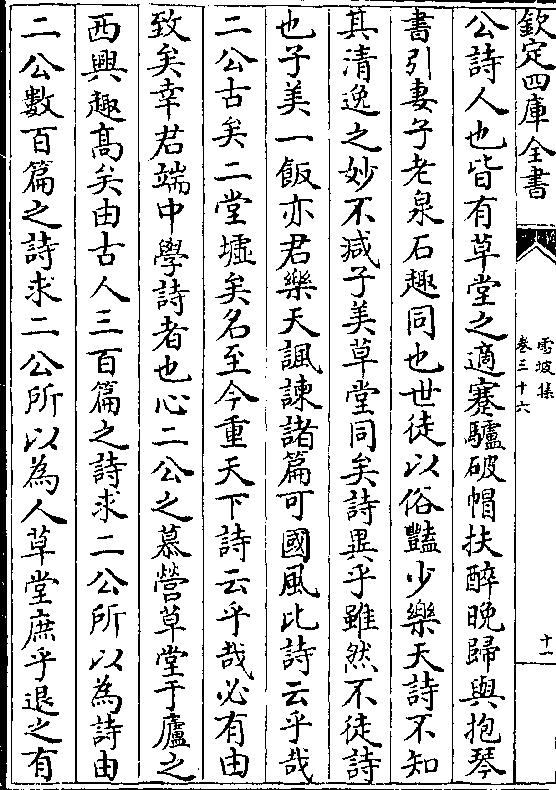 欽定四庫全書
雪坡集
卷三十六
十一
公詩人也皆有草堂之適蹇驢破帽扶醉晚歸與抱琴
書引妻子老泉石趣同也世徒以俗豔少樂天詩不知
其清逸之妙不減子美草堂同矣詩異乎雖然不徒詩
也子美一飯亦君樂天諷諫諸篇可國風比詩云乎哉
二公古矣二堂墟矣名至今重天下詩云乎哉必有由
致矣幸君端中學詩者也心二公之慕營草堂于廬之
西興趣髙矣由古人三百篇之詩求二公所以為詩由
二公數百篇之詩求二公所以為人草堂庶乎退之有